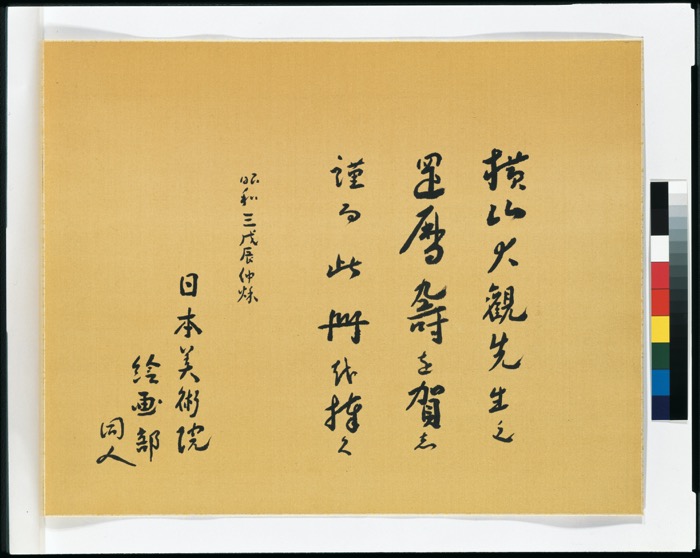 横山大観先生之
還暦寿を賀志
謹而此冊を捧久
昭和三戊辰仲秌
日本美術院
絵画部
同人